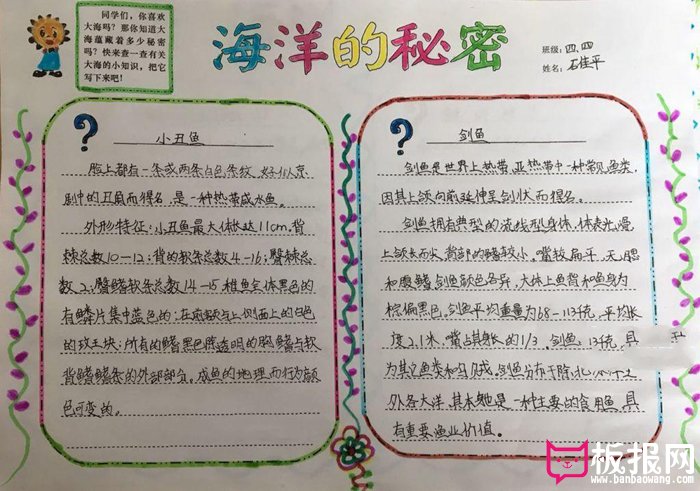 同学们，你喜欢
大海吗？那你知道大
海蕴藏着多少秘密
吗？快来查一查有关
大海的小知识，把它
写下来吧！
海洋的秘密
班级：四.四
姓名：石佳平
?
小丑鱼
脸上都有一条或两条白色条纹，好似京
剧中的丑角而得名，是一种热带咸水鱼。
外形特征：小丑鱼最大体长达11cm,背
棘总数10-12；背的软条总数4-16；臀棘总
数2；臀鳍软条总数14-15.稚鱼全体黑色的
有鳞片集中蓝色的；在前额与上侧面上的白色
的块；所有的鳍黑色除透明的胸鳍与软
背鳍鳍条的外部部分。成鱼的地理而行为颜
色可变的。
?
剑鱼
剑鱼是世界上热带、亚热带中一种常见鱼类，
因其上颌向前延伸呈剑状而得名。
剑鱼拥有典型的流线型身体，体表光滑，
上颌长而尖，背部的鳍较小。嘴较扁平，无腮
和腹鳍.剑鱼颜色各异，大体上鱼背和鱼身为
棕偏黑色。剑鱼平均重量为68-113千克，平均长
度2.1米，嘴占其身长的1/3。剑鱼.13千克，具
为其它鱼类和乌贼。剑鱼分布于除北
外各大洋，其本是一种主要的食用鱼，具
有重要渔业价值。
板报网
www.banbaowang.com